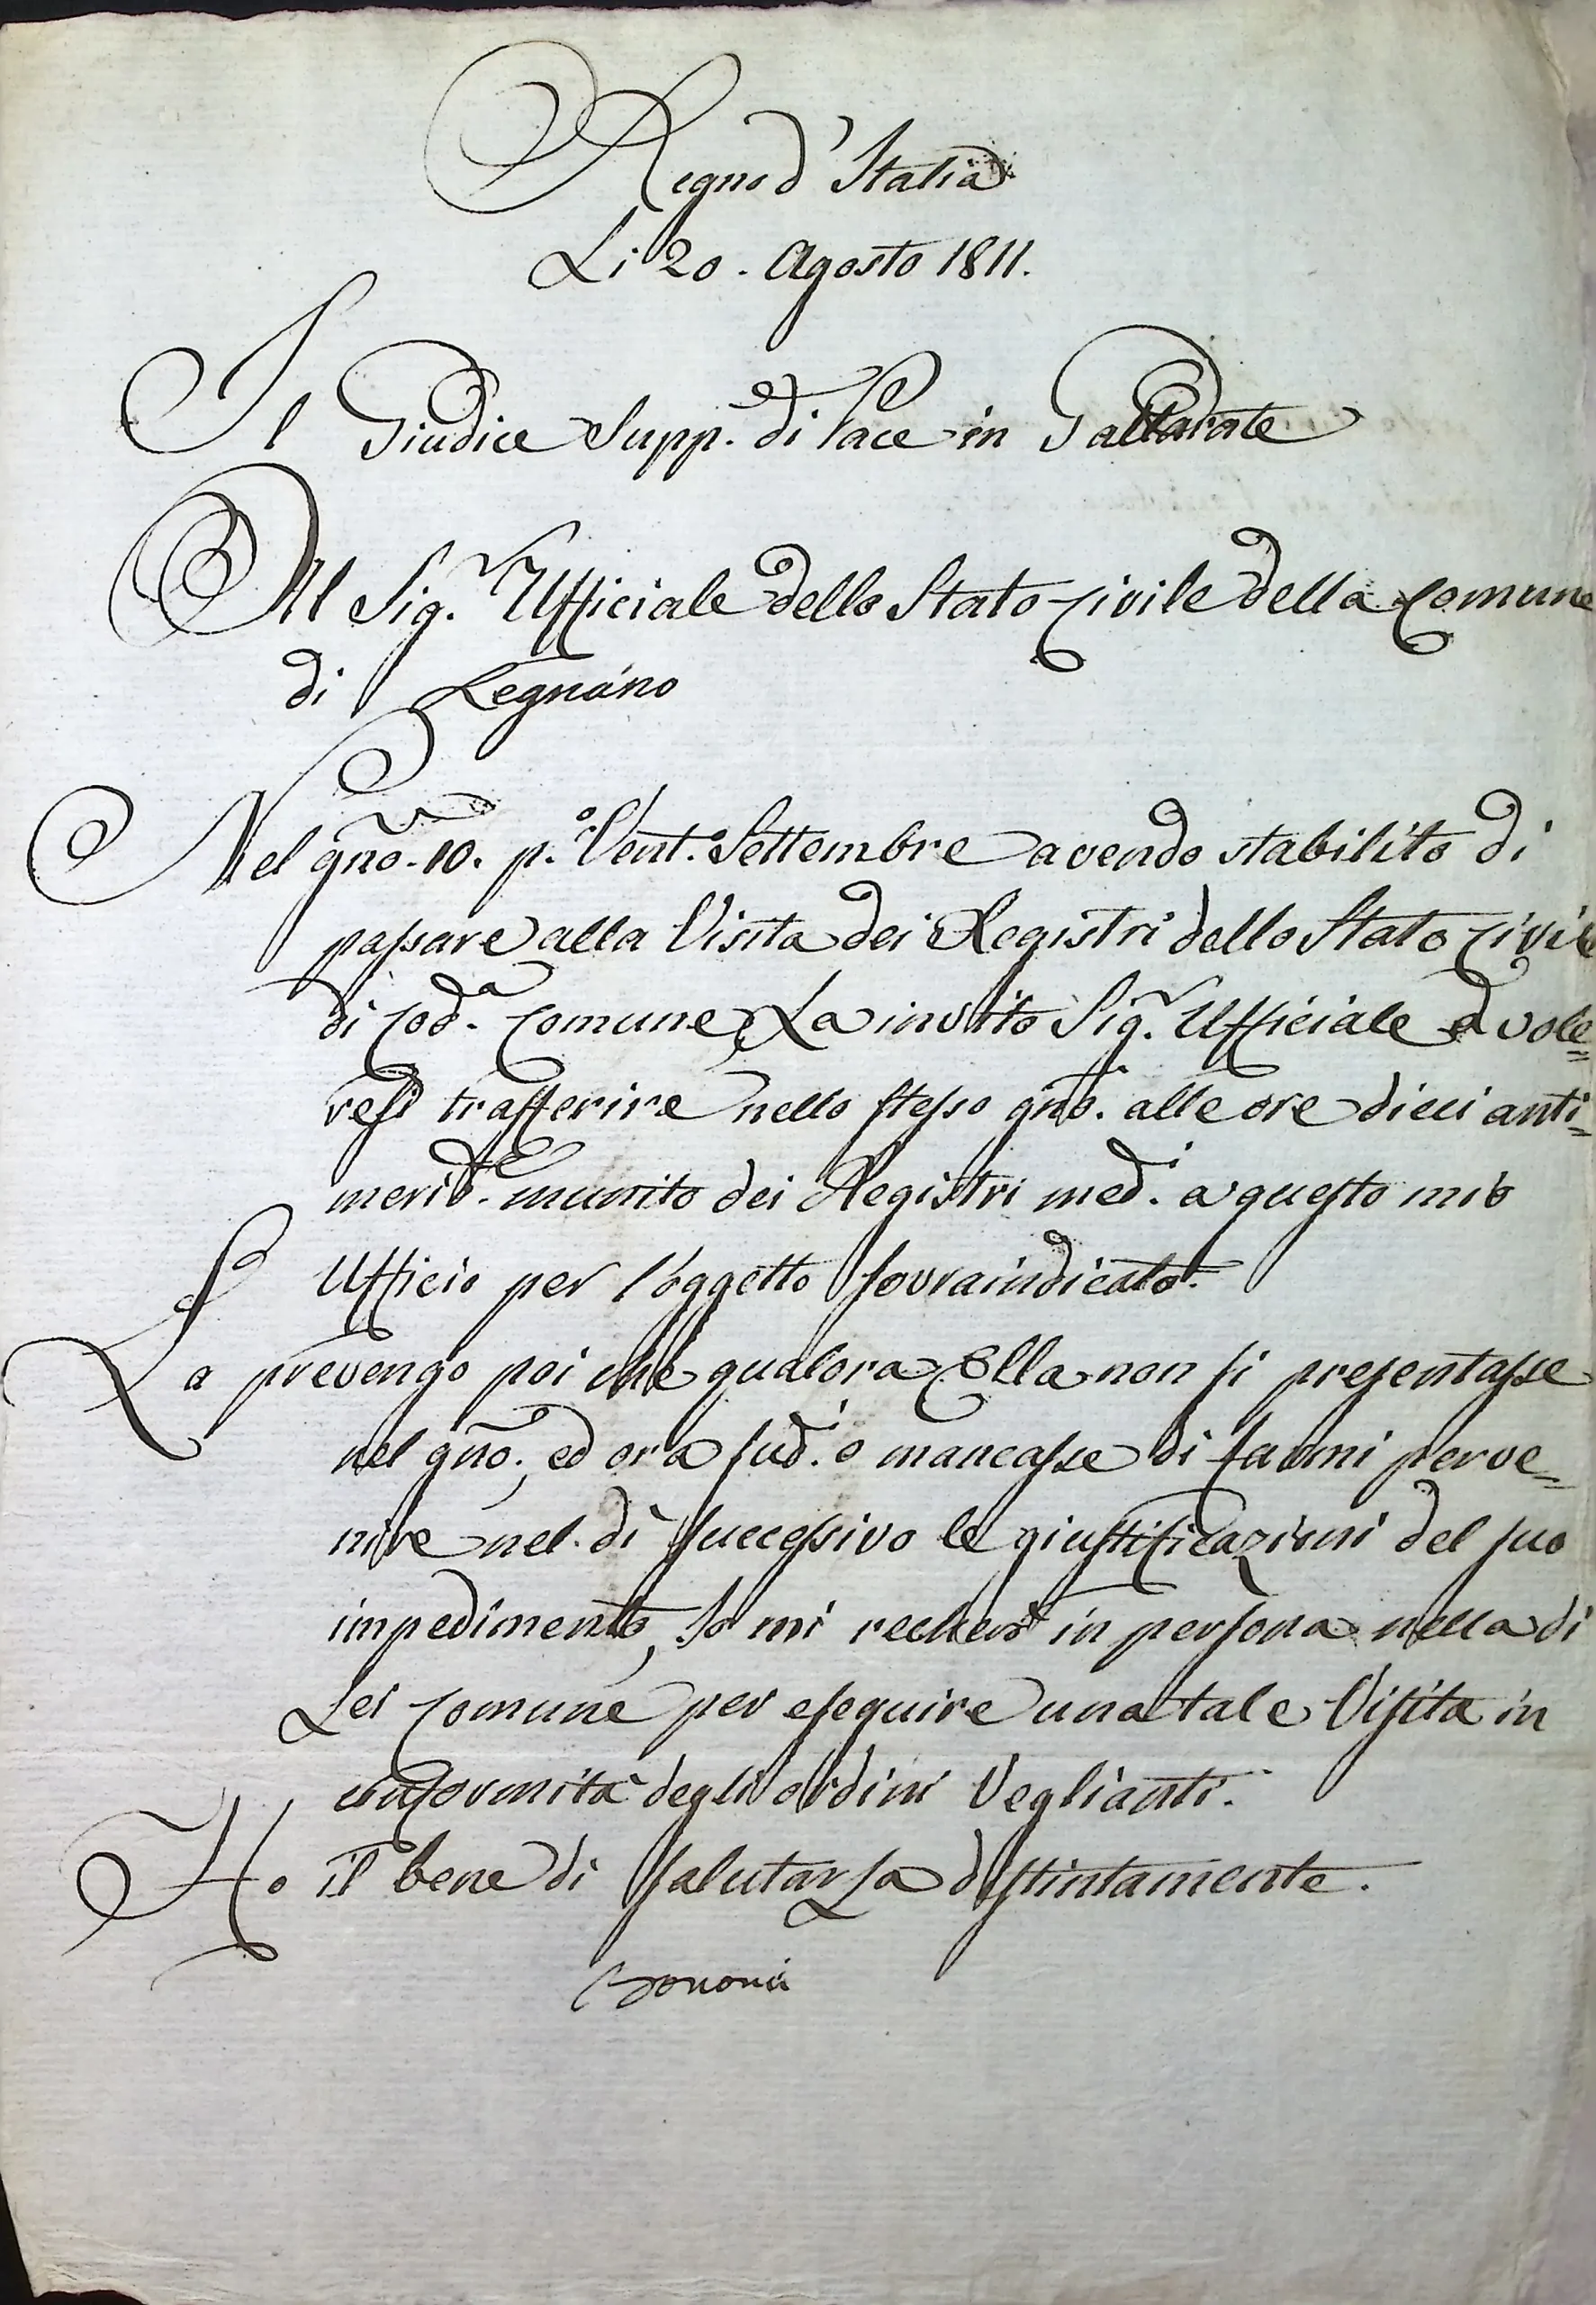 Regno d'Italia
Li 20. Agosto 1811.
Il Giudice Supp.e di Pace in Gallarate
Al Sig.r Ufficiale dello Stato Civile della Comune
di Legnano
Nel gño. 10. p.o Vent.o Settembre avendo stabilito di
passare alla Visita dei Registri dello Stato Civile
di cod.a Comune, La invito Sig.r Ufficiale a vole=
resi trasferire nello stesso gño. alle ore dieci anti=
merid.e munito dei Registri med.i a questo mio
Ufficio per l'oggetto sovraindicato.
La prevengo poi che qualora Ella non si presentasse
nel gño., ed ora sud.i o mancasse di farmi perve=
nire nel dì successivo le giustificazioni del suo
impedimento, Io mi recherò in persona nella di
Lei Comune per eseguire una tale Visita in
conformità degli ordini Veglianti.
Ho il bene di salutarLa distintamente.
Bononi